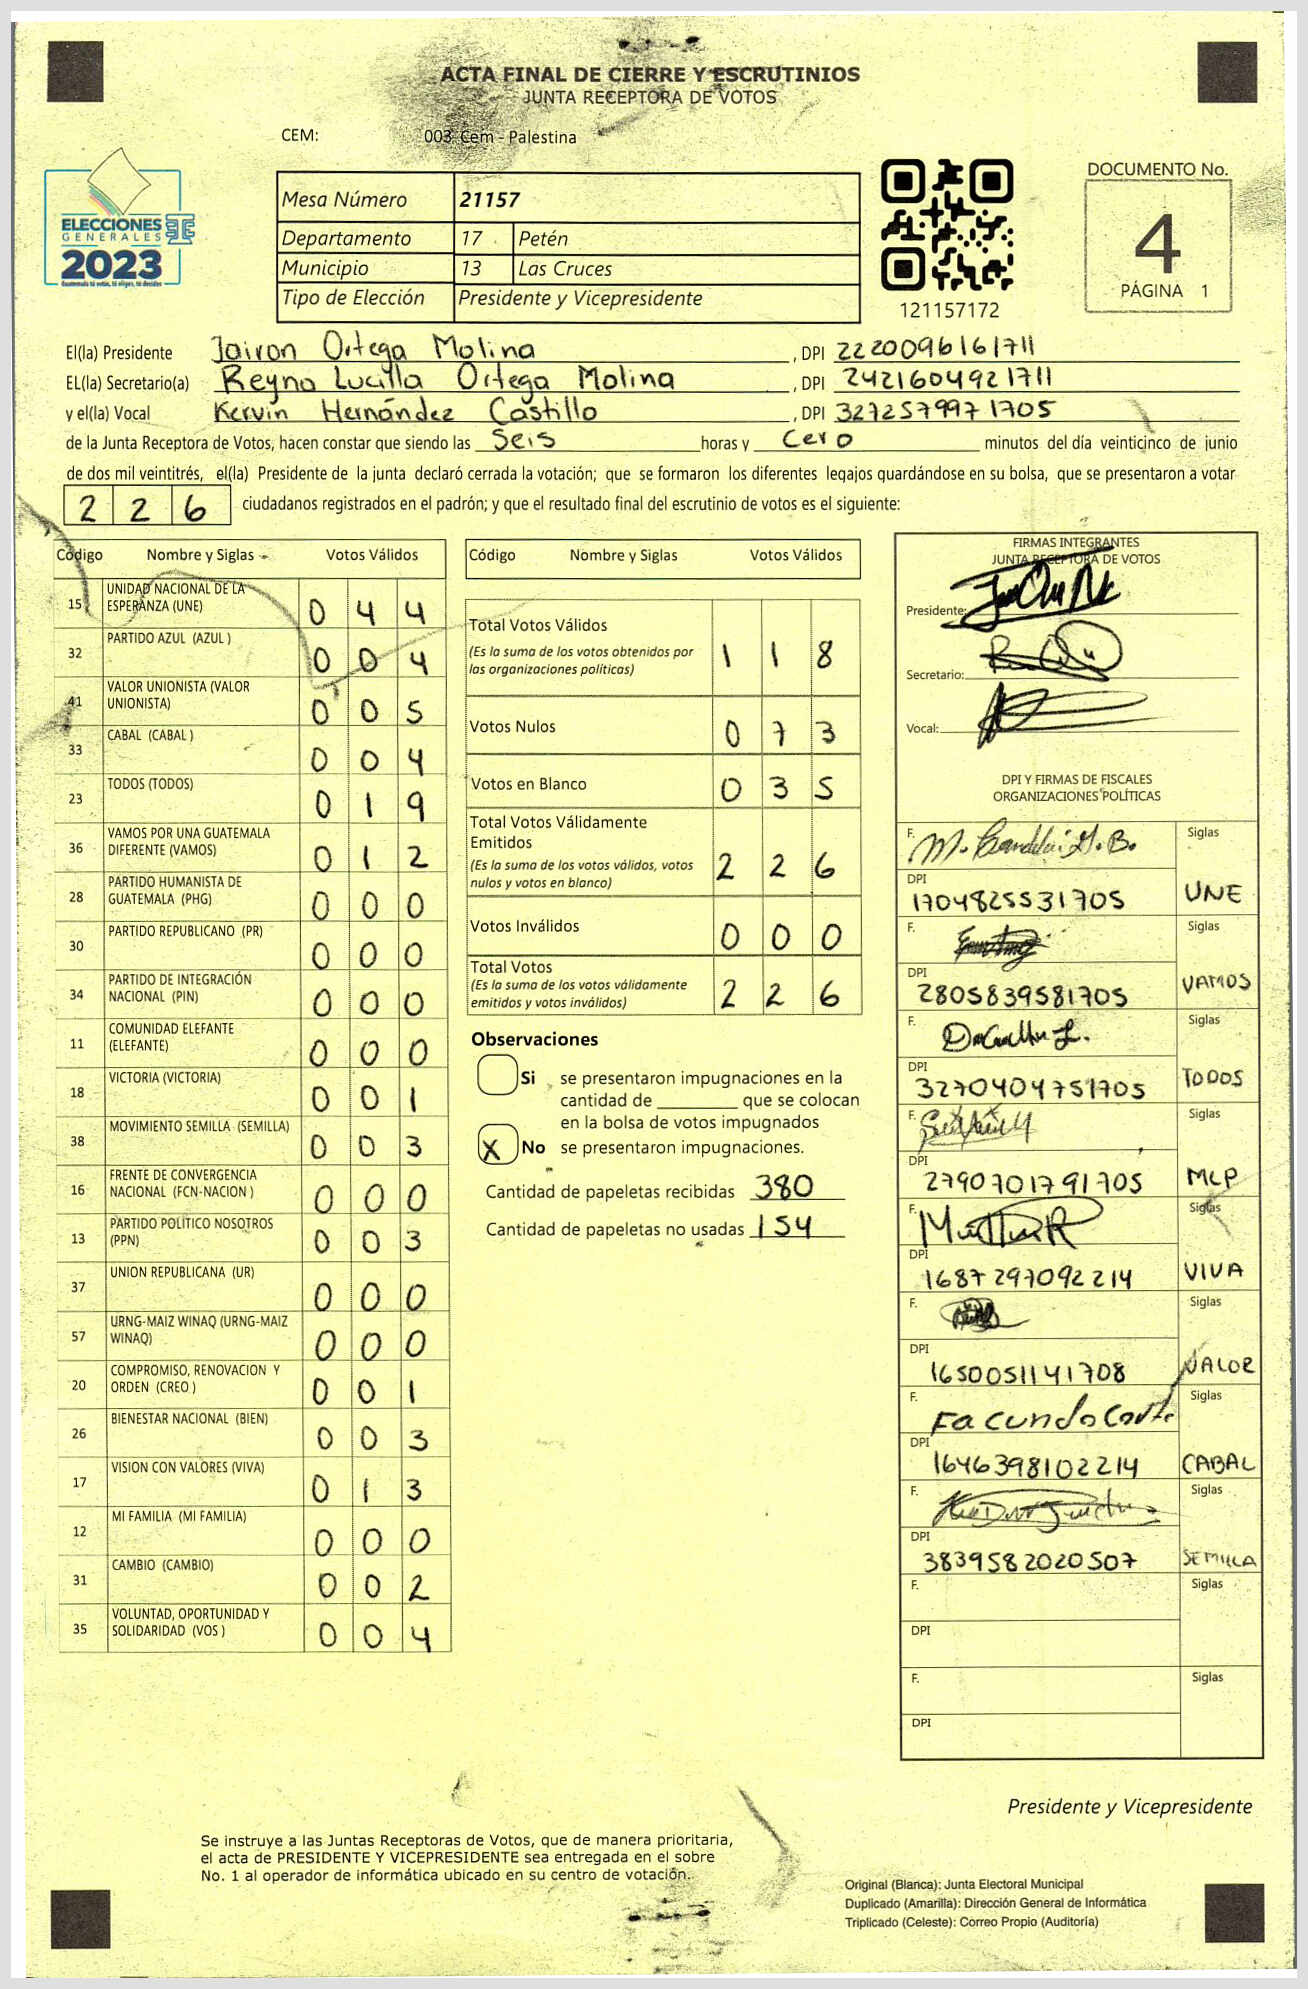 ACTA FINAL DE CIERRE Y ESCRUTINIOS
JUNTA RECEPTORA DE VOTOS
CEM: 003 Cem - Palestina
ELECCIONES
GENERALES
2023
Guatemala tú votas, tú eliges, tú decides
Mesa Número 21157
Departamento 17 Petén
Municipio 13 Las Cruces
Tipo de Elección Presidente y Vicepresidente
121157172
DOCUMENTO No.
4
PÁGINA 1
El(la) Presidente Jairon Ortega Molina, DPI 2220096161711
EL(la) Secretario(a) Reyna Lucilla Ortega Molina, DPI 2421604921711
y el(la) Vocal Kervin Hernández Castillo, DPI 3272579971705
de la Junta Receptora de Votos, hacen constar que siendo las Seis horas y Cero minutos del día veinticinco de junio
de dos mil veintitrés, el(la) Presidente de la junta declaró cerrada la votación; que se formaron los diferentes legajos quardándose en su bolsa, que se presentaron a votar
226 ciudadanos registrados en el padrón; y que el resultado final del escrutinio de votos es el siguiente:
Código Nombre y Siglas Votos Válidos
15 UNIDAD NACIONAL DE LA ESPERANZA (UNE) 044
32 PARTIDO AZUL (AZUL ) 004
41 VALOR UNIONISTA (VALOR UNIONISTA) 005
33 CABAL (CABAL ) 004
23 TODOS (TODOS) 019
36 VAMOS POR UNA GUATEMALA DIFERENTE (VAMOS) 012
28 PARTIDO HUMANISTA DE GUATEMALA (PHG) 000
30 PARTIDO REPUBLICANO (PR) 000
34 PARTIDO DE INTEGRACIÓN NACIONAL (PIN) 000
11 COMUNIDAD ELEFANTE (ELEFANTE) 000
18 VICTORIA (VICTORIA) 001
38 MOVIMIENTO SEMILLA (SEMILLA) 003
16 FRENTE DE CONVERGENCIA NACIONAL (FCN-NACION ) 000
13 PARTIDO POLÍTICO NOSOTROS (PPN) 003
37 UNION REPUBLICANA (UR) 000
57 URNG-MAIZ WINAQ (URNG-MAIZ WINAQ) 000
20 COMPROMISO, RENOVACION Y ORDEN (CREO ) 001
26 BIENESTAR NACIONAL (BIEN) 003
17 VISION CON VALORES (VIVA) 013
12 MI FAMILIA (MI FAMILIA) 000
31 CAMBIO (CAMBIO) 002
35 VOLUNTAD, OPORTUNIDAD Y SOLIDARIDAD (VOS ) 004
Código Nombre y Siglas Votos Válidos
Total Votos Válidos
(Es la suma de los votos obtenidos por las organizaciones políticas) 118
Votos Nulos 073
Votos en Blanco 035
Total Votos Válidamente Emitidos
(Es la suma de los votos válidos, votos nulos y votos en blanco) 226
Votos Inválidos 000
Total Votos
(Es la suma de los votos válidamente emitidos y votos inválidos) 226
Observaciones
Si se presentaron impugnaciones en la
cantidad de ________ que se colocan
en la bolsa de votos impugnados
X No se presentaron impugnaciones.
Cantidad de papeletas recibidas 380
Cantidad de papeletas no usadas 154
FIRMAS INTEGRANTES
JUNTA RECEPTORA DE VOTOS
Presidente:
Secretario:
Vocal:
DPI Y FIRMAS DE FISCALES
ORGANIZACIONES POLÍTICAS
F. Siglas
DPI 1704825531705 UNE
F. Siglas
DPI 2805839581705 VAMOS
F. Siglas
DPI 3270404751705 TODOS
F. Siglas
DPI 2790701791705 MLP
F. Siglas
DPI 1687297092214 VIVA
F. Siglas
DPI 1650051141708 VALOR
F. Facundo Siglas
DPI 1646398102214 CABAL
F. Siglas
DPI 3839582020507 SEMILLA
F. Siglas
DPI
F. Siglas
DPI
Presidente y Vicepresidente
Se instruye a las Juntas Receptoras de Votos, que de manera prioritaria,
el acta de PRESIDENTE Y VICEPRESIDENTE sea entregada en el sobre
No. 1 al operador de informática ubicado en su centro de votación.
Original (Blanca): Junta Electoral Municipal
Duplicado (Amarilla): Dirección General de Informática
Triplicado (Celeste): Correo Propio (Auditoría)